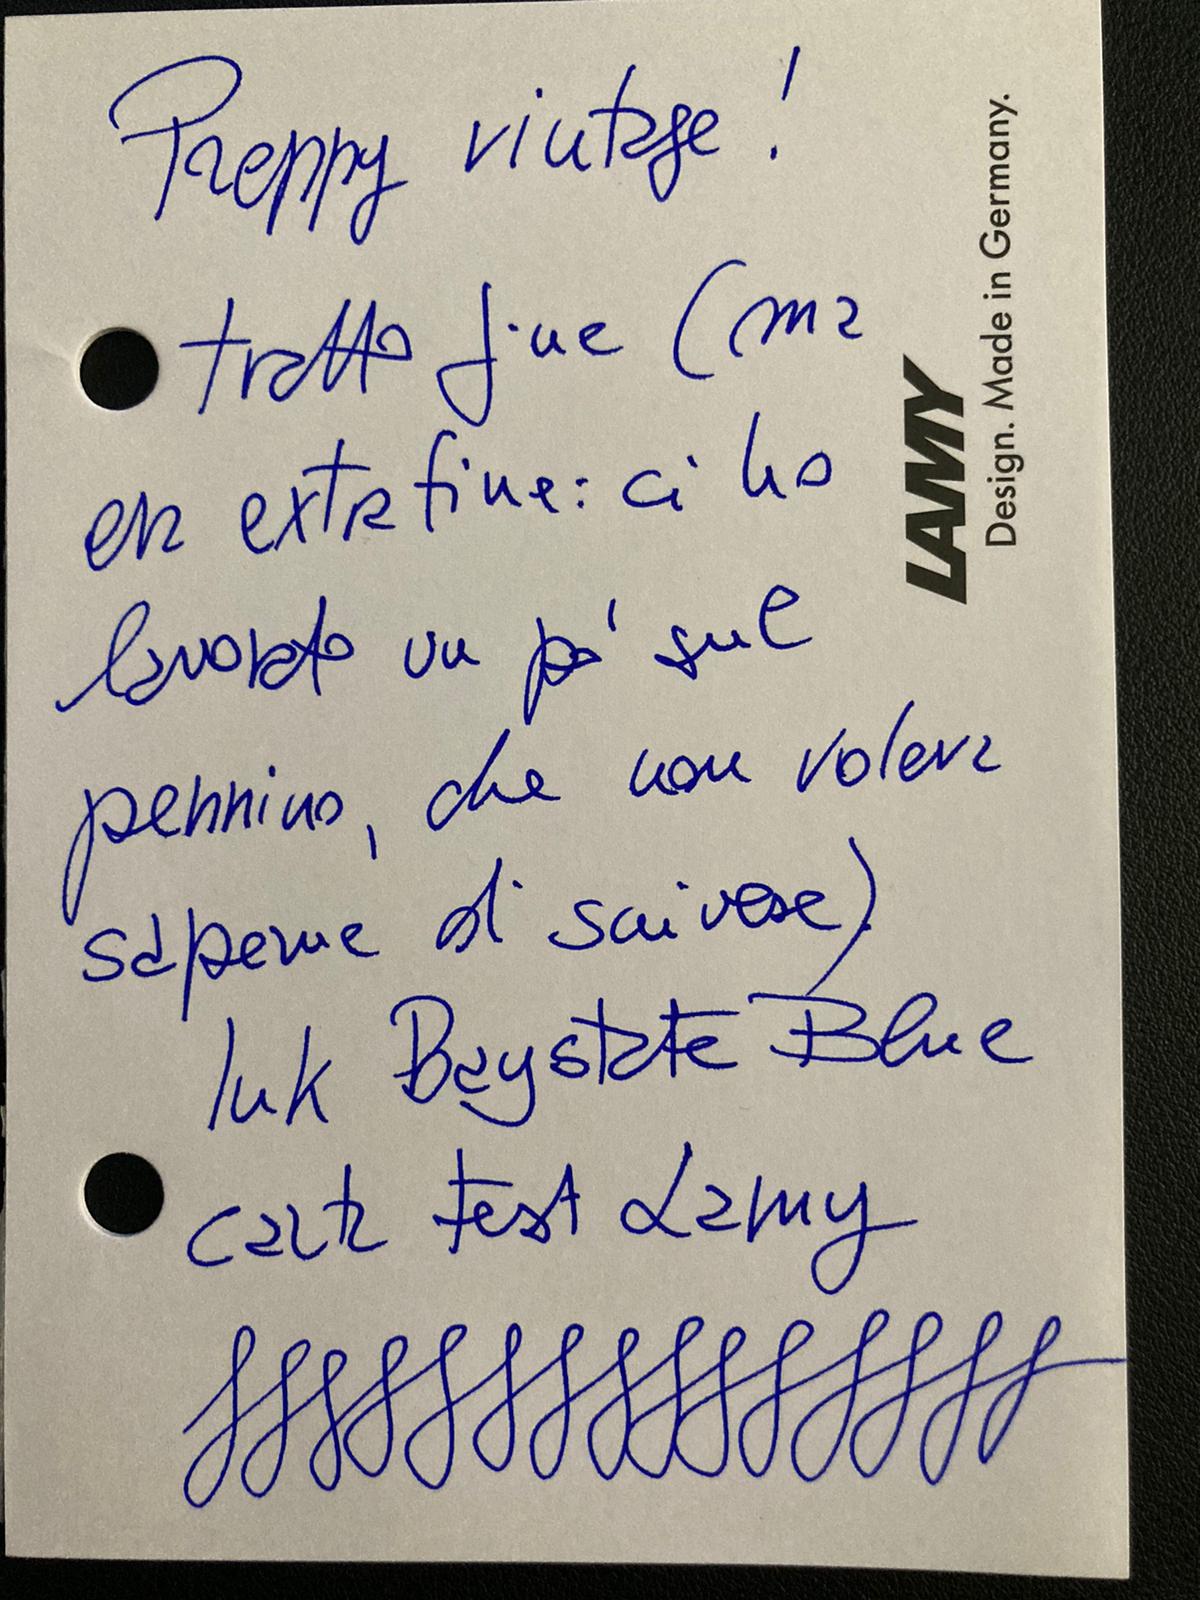 Preppy vintage!
tratto fine (ma
era extra fine: ci ho
lavorato un pò sul
pennino, che non voleva
saperne di scrivere)
Ink Baystate Blue
carta test Lamy
LAMY
Design. Made in Germany.